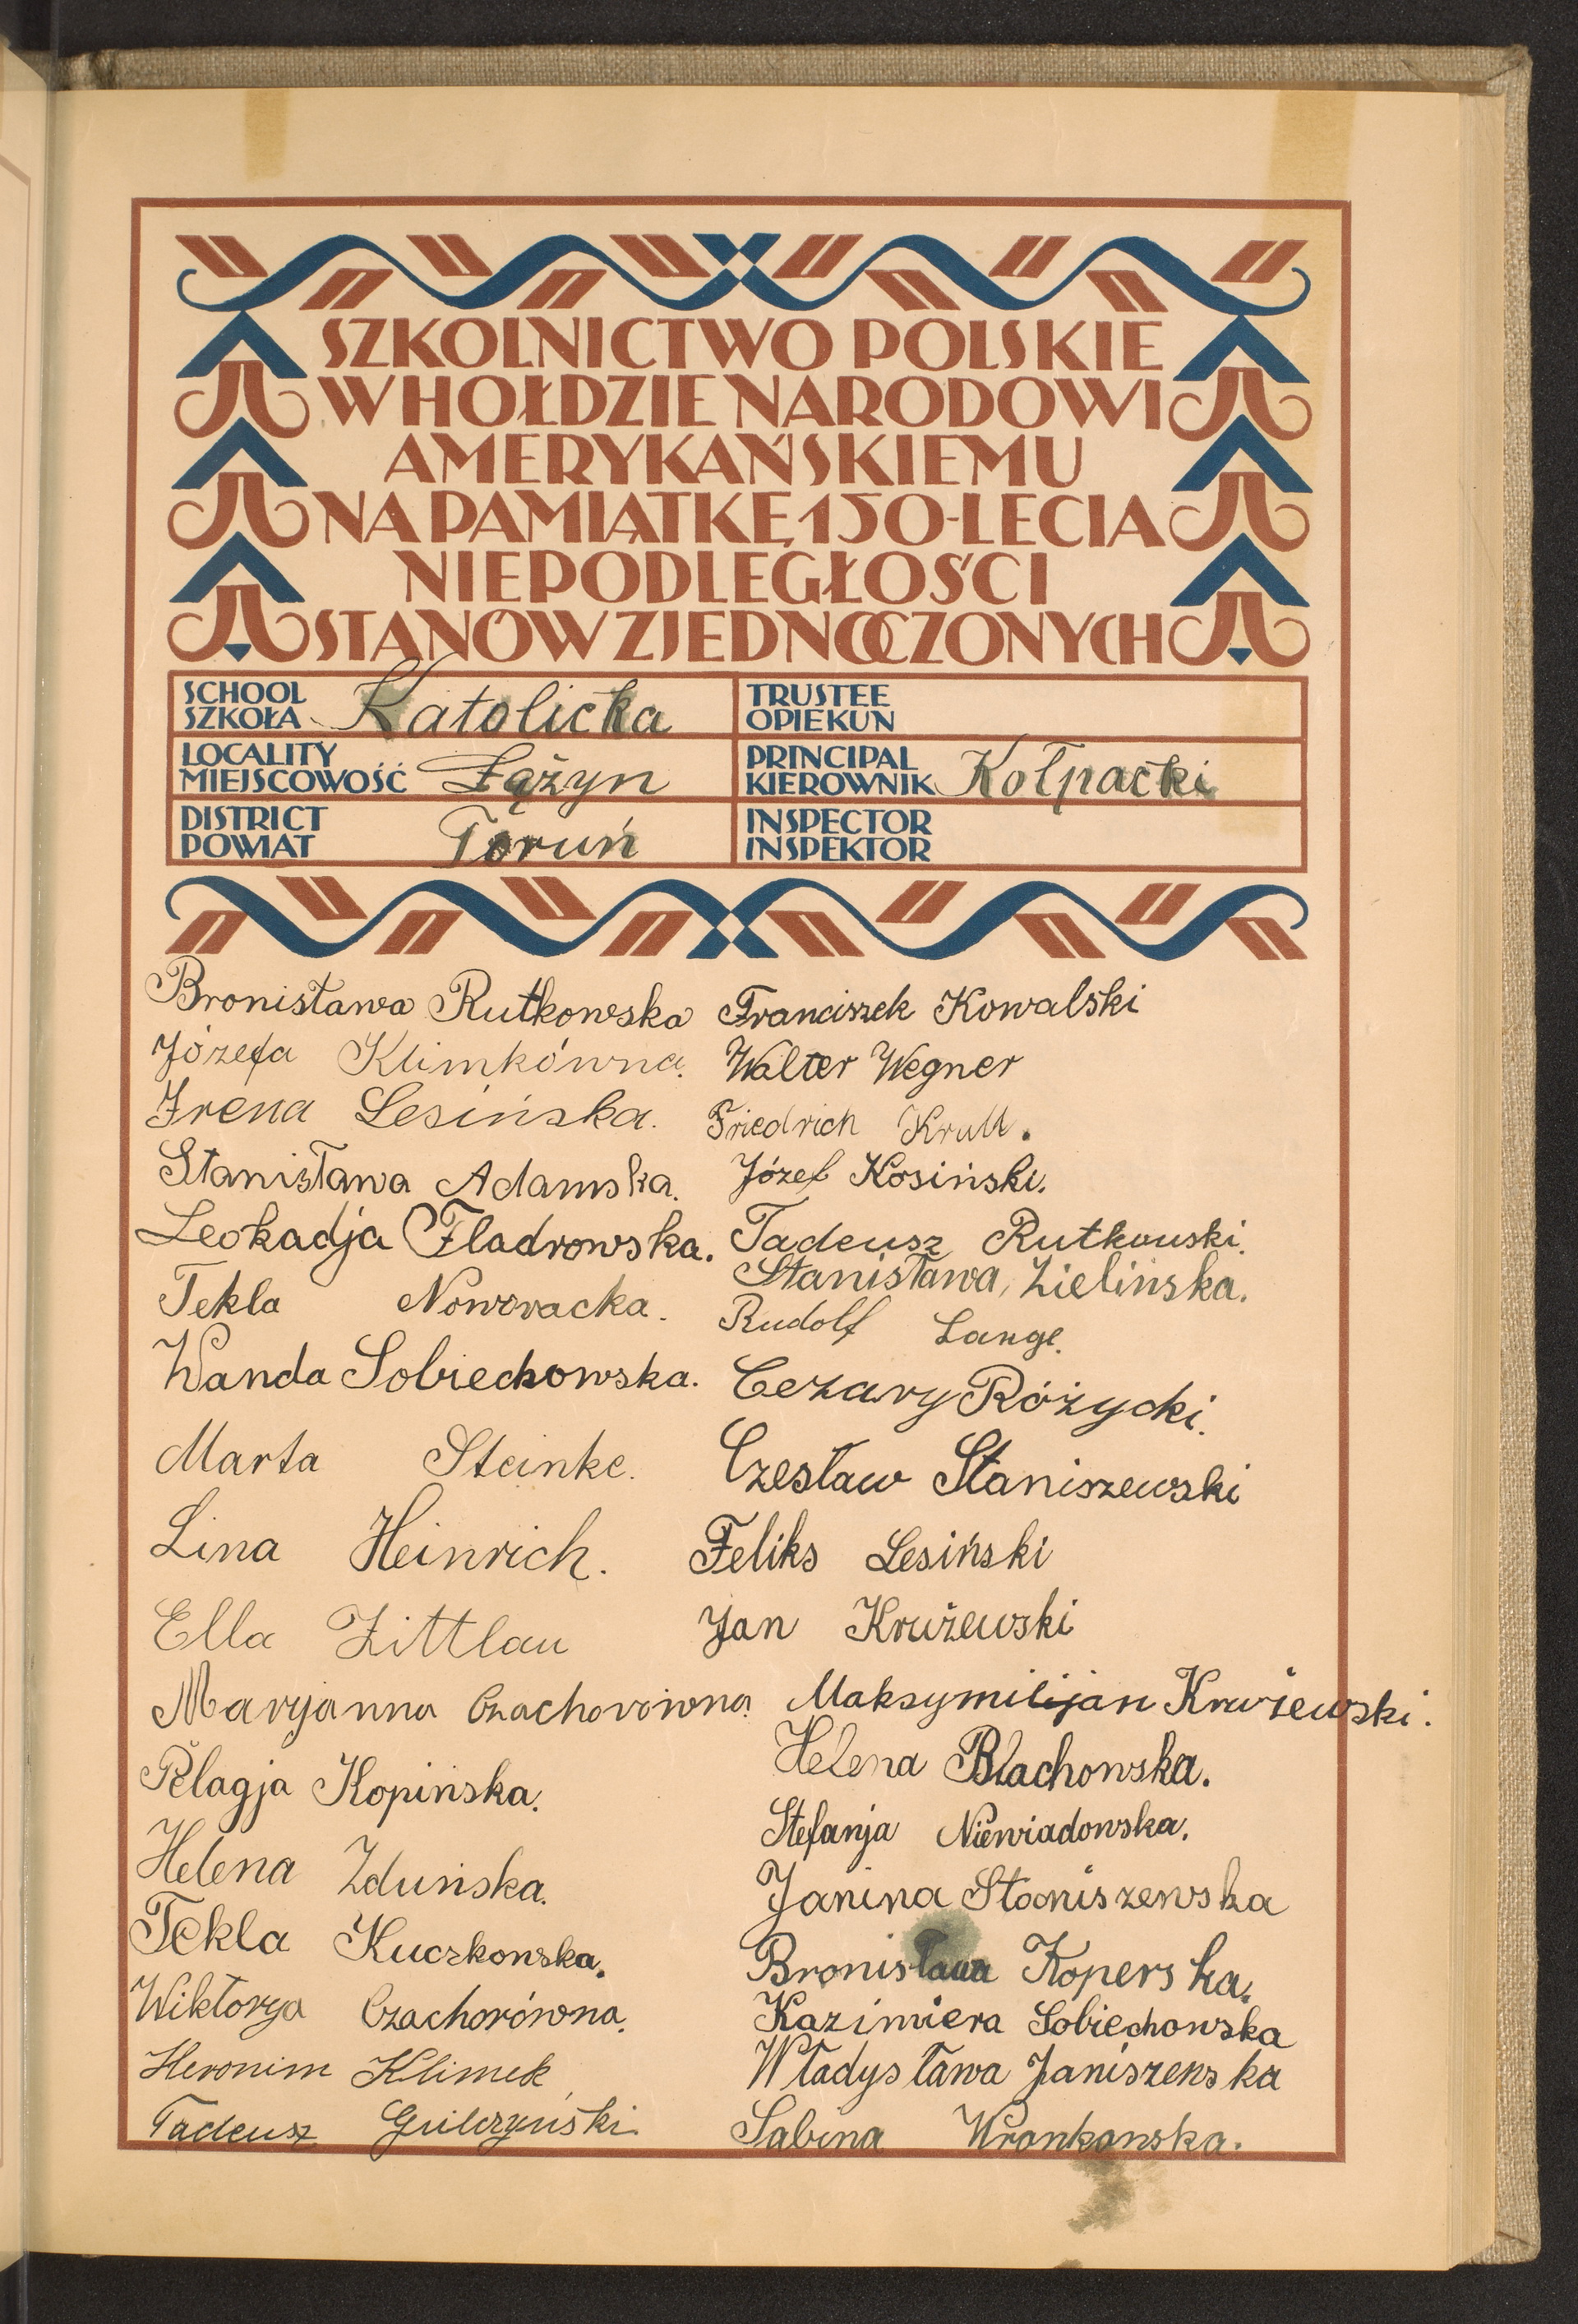 SZKOLNICTWO POLSKIE
W HOŁDZIE NARODOWI
AMERYKAŃSKIEMU
NA PAMIĄTKĘ 150-LECIA
NIEPODLEGŁOŚCI
STANÓW ZJEDNOCZONYCH
SCHOOL
SZKOŁA Katolicka
TRUSTEE
OPIEKUN
LOCALITY
MIEJSCOWOŚĆ Łążyn
PRINCIPAL
KIEROWNIK Kołpacki
DISTRICT
POWIAT Toruń
INSPECTOR
INSPEKTOR
Bronisława Rutkowska
Józefa Klimkówna.
Irena Lesińska.
Stanisława Adamska.
Leokadja Fladrowska.
Tekla Nowowacka.
Wanda Sobiechowska.
Marta Steinke.
Lina Heinrich.
Ella Zittlau
Maryanna Czachorówna.
Pelagja Kopińska.
Helena Zduńska.
Tekla Kuczkowska.
Wiktorya Czachorówna.
Heronim Klimek
Tadeusz Gulczyński
Franciszek Kowalski
Walter Wegner
Friedrich Krull.
Józef Kosiński.
Tadeusz Rutkouski.
Stanisława, Zielińska.
Rudolf Lange.
Cezary Różycki.
Czesław Staniszewski
Feliks Lesiński
Jan Krużewski
Maksymilijan Krużewski.
Helena Blachowska.
Stefanja Niewiadowska.
Janina Staniszewska
Bronisława Koperska.
Kazimiera Sobiechowska
Władysława Janiszewska
Sabina Wronkowska.